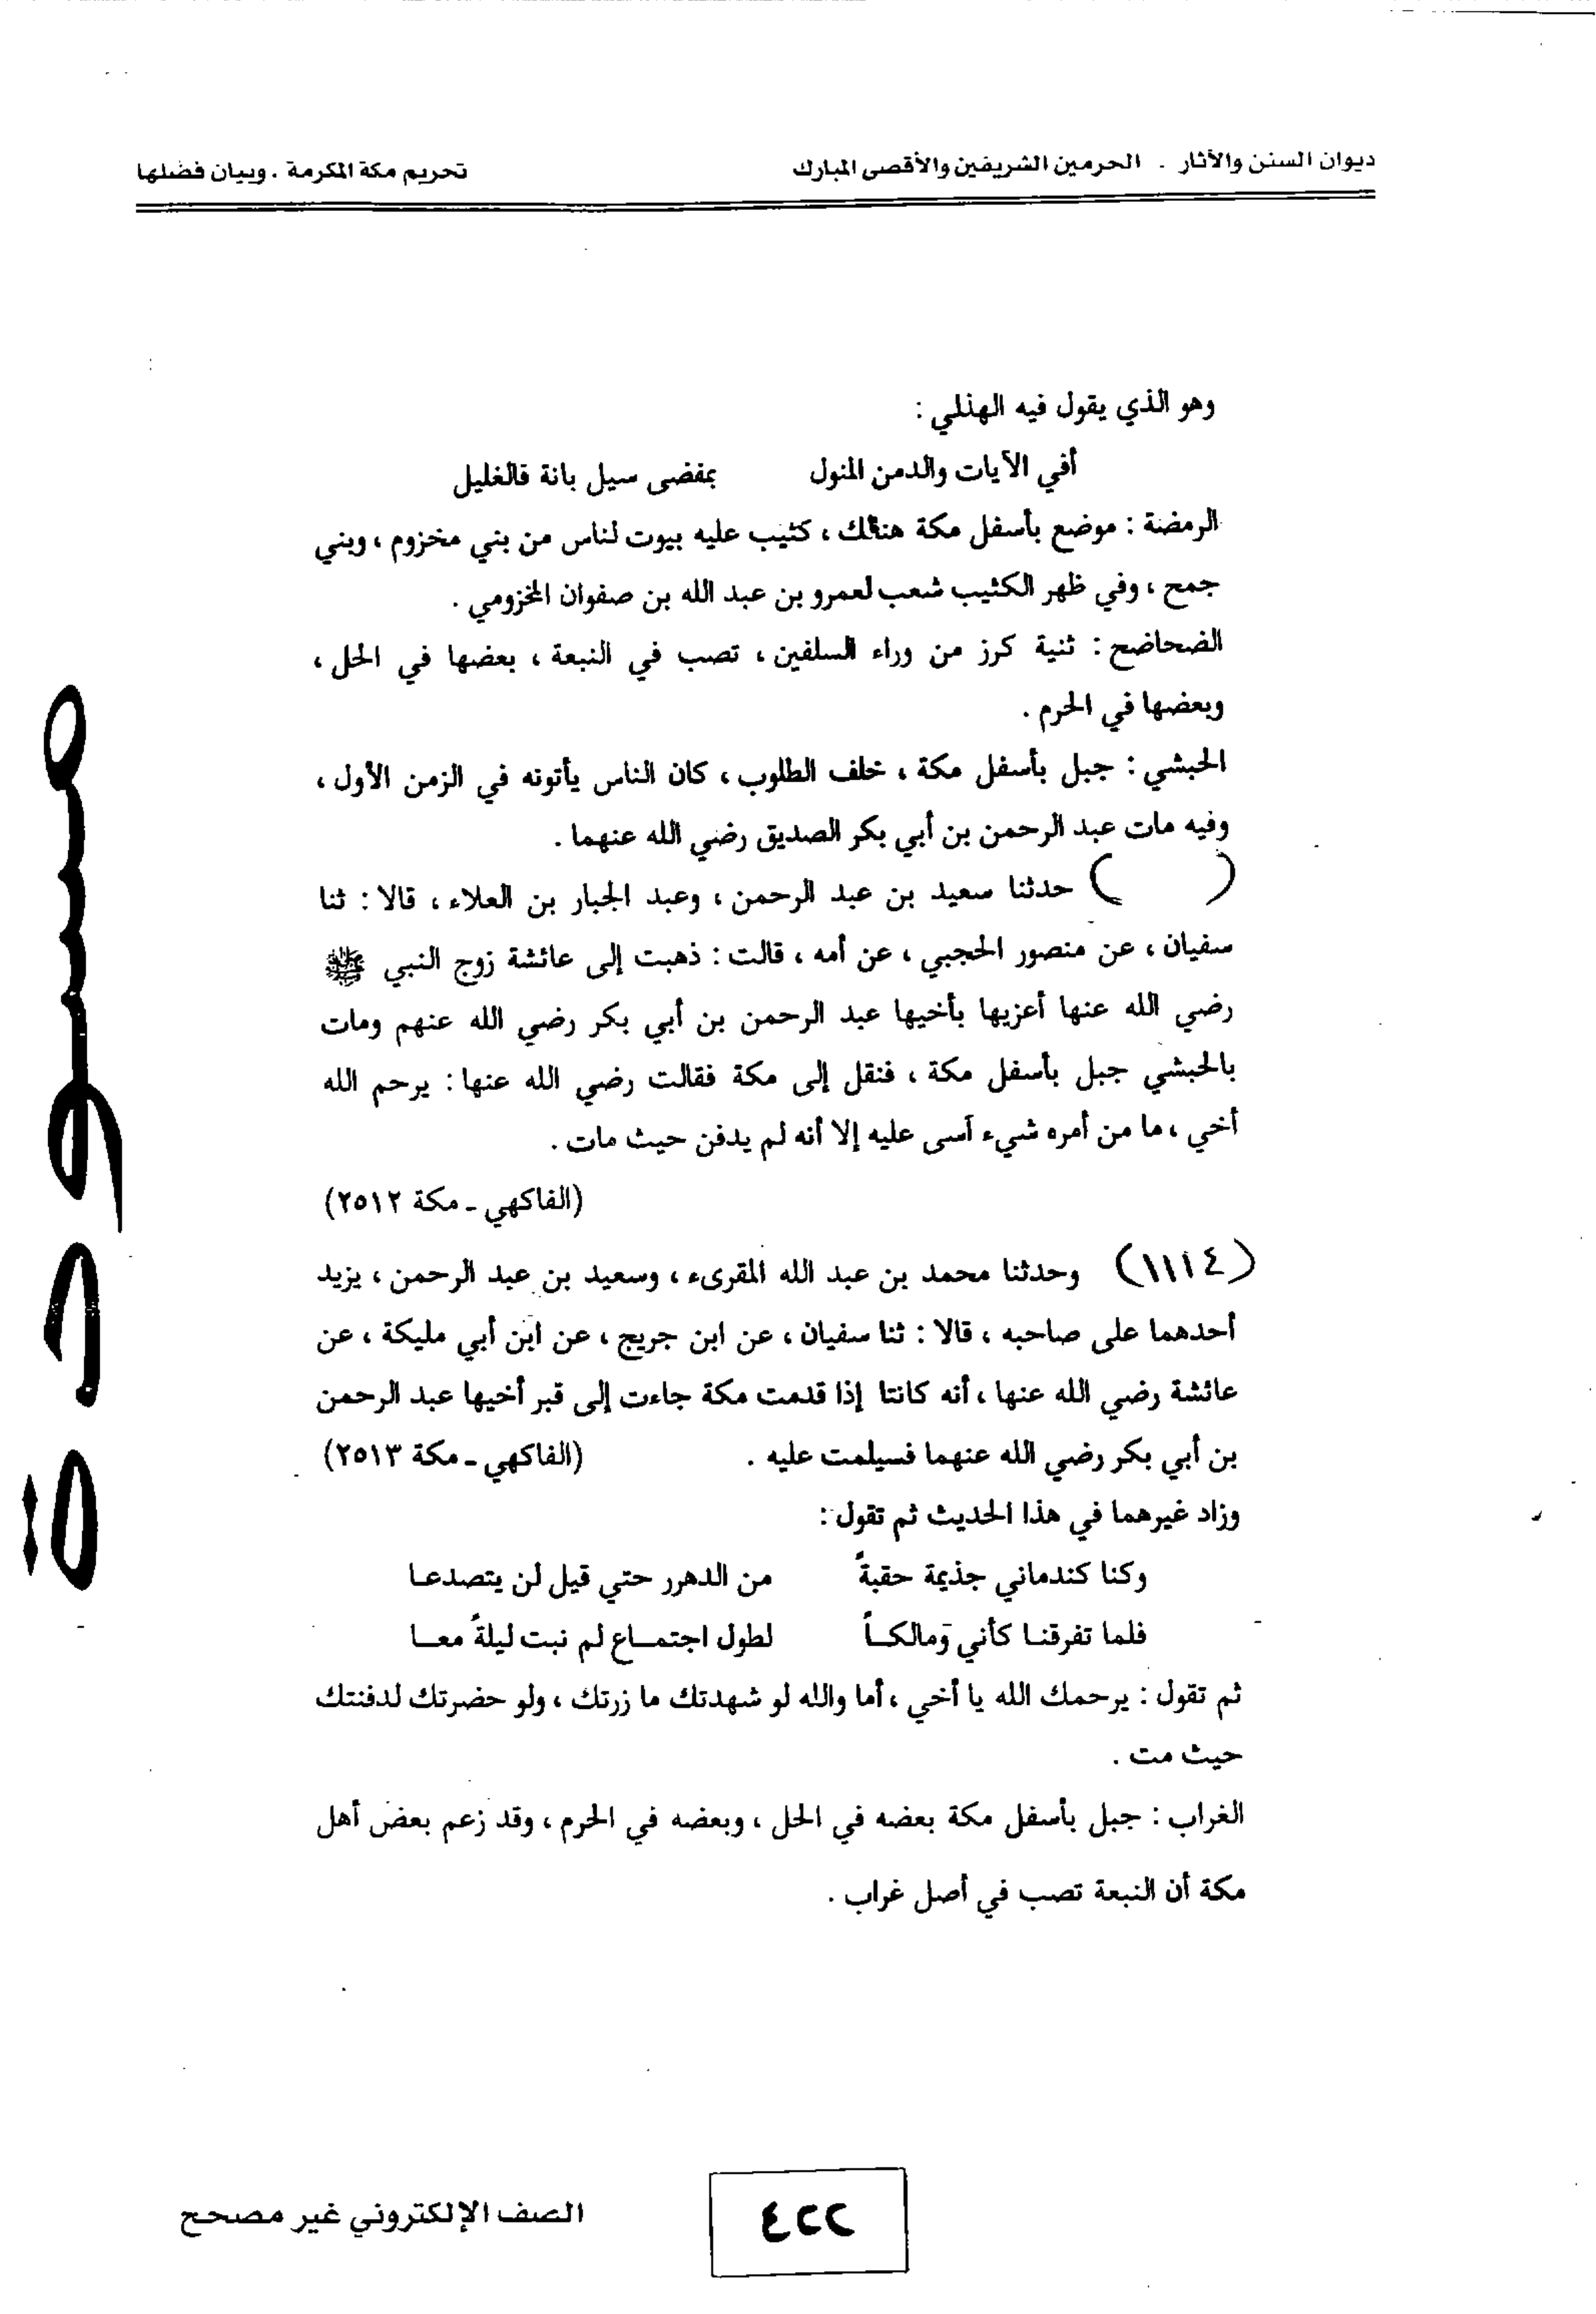 ديوان السنن والآثار . الحرمين الشريفين والأقصى المبارك
تحريم مكة المكرمة . وبيان فضلها
وهو الذي يقول فيه الهذلي :
أفي الآيات والدمن المنول بمفضى سيل بانة فالغليل
الرمضة : موضع بأسفل مكة هنالك ، كثيب عليه بيوت لناس من بني مخزوم ، وبني
جمح ، وفي ظهر الكثيب شعب لعمرو بن عبد الله بن صفوان المخزومي .
الضحاضح : ثنية كرز من وراء السلفين ، تصب في النبعة ، بعضها في الحل ،
وبعضها في الحرم .
الحبشي : جبل بأسفل مكة ، خلف الطلوب ، كان الناس يأتونه في الزمن الأول ،
وفيه مات عبد الرحمن بن أبي بكر الصديق رضي الله عنهما .
( ) حدثنا سعيد بن عبد الرحمن ، وعبد الجبار بن العلاء ، قالا : ثنا
سفيان ، عن منصور الحجبي ، عن أمه ، قالت : ذهبت إلى عائشة زوج النبي ﷺ
رضي الله عنها أعزيها بأخيها عبد الرحمن بن أبي بكر رضي الله عنهم ومات
بالحبشي جبل بأسفل مكة ، فنقل إلى مكة فقالت رضي الله عنها : يرحم الله
أخي ، ما من أمره شيء آسى عليه إلا أنه لم يدفن حيث مات .
(الفاكهي ـ مكة ٢٥١٢)
(١١١٤) وحدثنا محمد بن عبد الله المقرىء ، وسعيد بن عبد الرحمن ، يزيد
أحدهما على صاحبه ، قالا : ثنا سفيان ، عن ابن جريج ، عن ابن أبي مليكة ، عن
عائشة رضي الله عنها ، أنه كانتا إذا قدمت مكة جاءت إلى قبر أخيها عبد الرحمن
بن أبي بكر رضي الله عنهما فسيلمت عليه . (الفاكهي ـ مكة ٢٥١٣)
وزاد غيرهما في هذا الحديث ثم تقول :
وكنا كندماني جذيمة حقبةً من الدهرر حتي قيل لن يتصدعـا
فلما تفرقنـا كأني وَمالكــاً لطول اجتمــاع لم نبت ليلةً معــا
ثم تقول : يرحمك الله يا أخي ، أما والله لو شهدتك ما زرتك ، ولو حضرتك لدفنتك
حيث مت .
الغراب : جبل بأسفل مكة بعضه في الحل ، وبعضه في الحرم ، وقد زعم بعض أهل
مكة أن النبعة تصب في أصل غراب .
مسودة
٤٢٢
الصف الإلكتروني غير مصحح